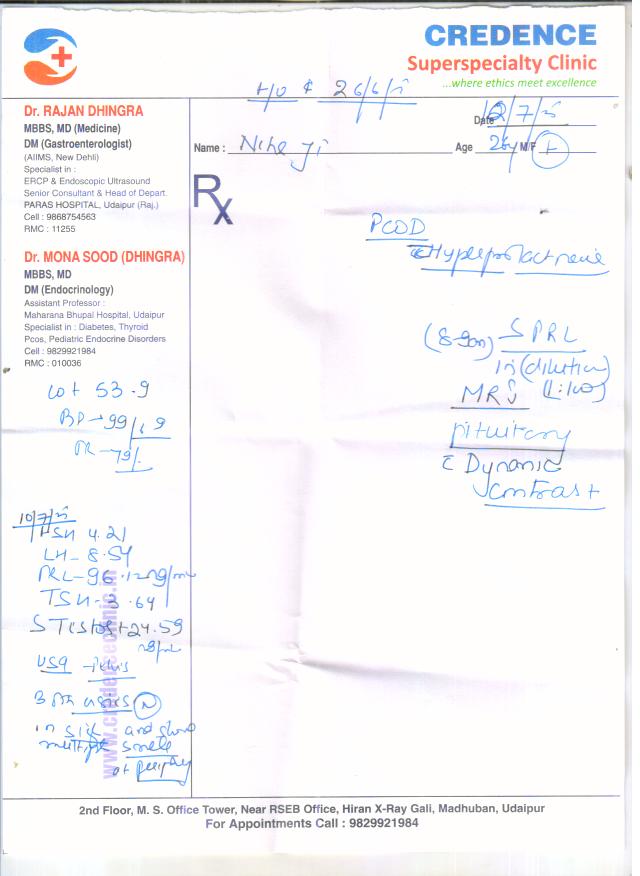 CREDENCE
Superspecialty Clinic
...where ethics meet excellence
26/6/
Dr. RAJAN DHINGRA
MBBS, MD (Medicine)
DM (Gastroenterologist)
(AIIMS, New Dehli)
Specialist in :
ERCP & Endoscopic Ultrasound
Senior Consultant & Head of Depart.
PARAS HOSPITAL, Udaipur (Raj.)
Cell : 9868754563
RMC : 11255
Date 12/7/
Name : Age 26y M/F
Rx
Dr. MONA SOOD (DHINGRA)
MBBS, MD
DM (Endocrinology)
Assistant Professor :
Maharana Bhupal Hospital, Udaipur
Specialist in : Diabetes, Thyroid
Pcos, Pediatric Endocrine Disorders
Cell : 9829921984
RMC : 010036
PCOD
(8-9am) S PRL
in (dilution)
MRI
pituitary
c Dynamic
contrast
53.9
BP → 99/
PR - 79/.
10/7/
4.21
LH - 8.54
PRL - 96.12 ng/ml
TSH - 3.64
S Testost 24.59
USG - pelvis
3 N
in size and show
multiple small
at periphery
www.credenceclinic.in
2nd Floor, M. S. Office Tower, Near RSEB Office, Hiran X-Ray Gali, Madhuban, Udaipur
For Appointments Call : 9829921984